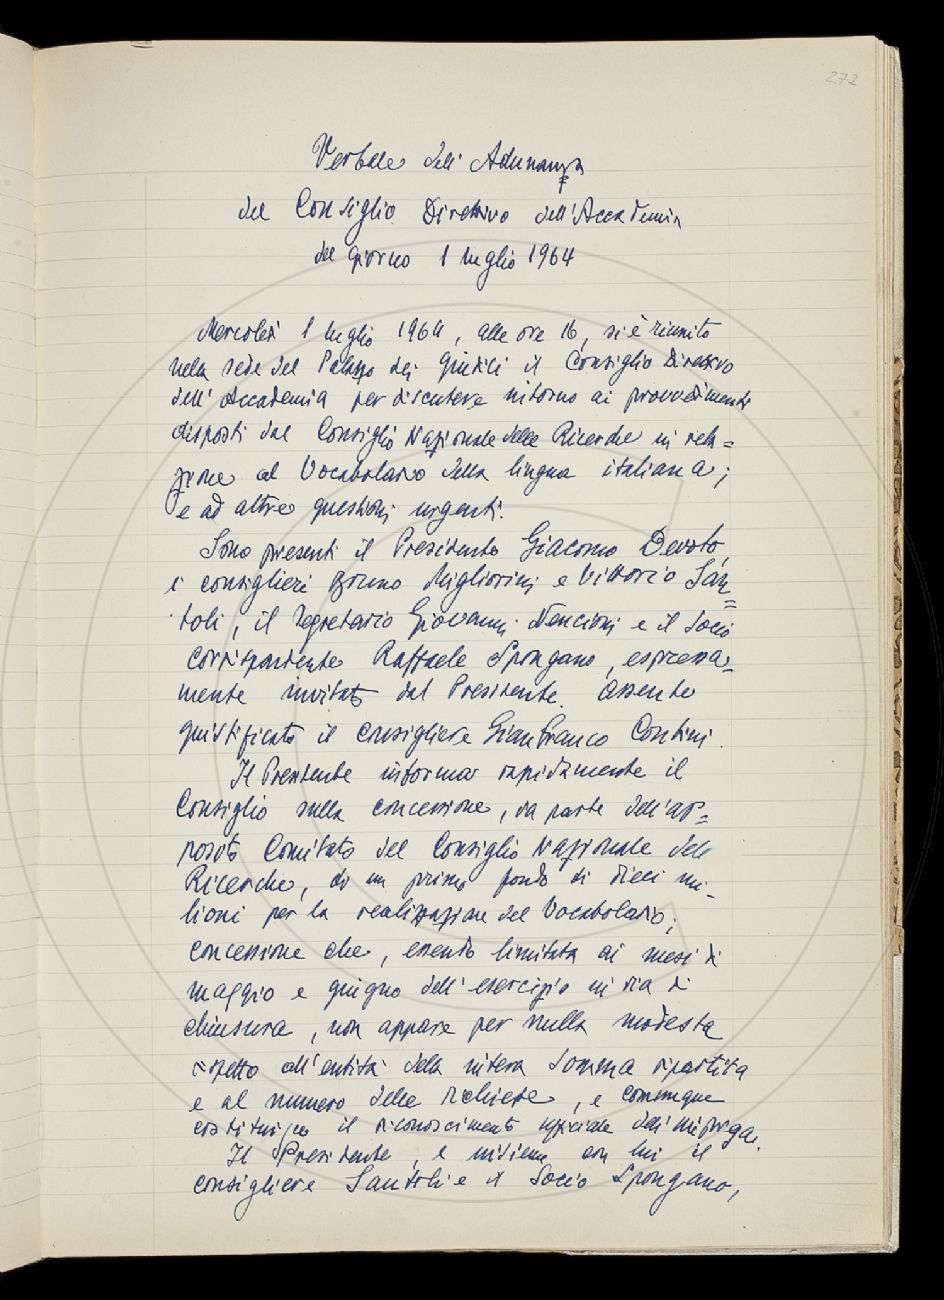 273
Verbale dell'Adunanza
del Consiglio Direttivo dell'Accademia
del giorno 1 luglio 1964
Mercoledì 1 luglio 1964, alle ore 16, si è riunito
nella sede del Palazzo dei Giudici il Consiglio Direttivo
dell'Accademia per discutere intorno ai provvedimenti
disposti dal Consiglio Nazionale delle Ricerche in rela=
zione al Vocabolario della lingua italiana;
e ad altre questioni urgenti.
Sono presenti il Presidente Giacomo Devoto,
i consiglieri Bruno Migliorini e Vittorio San=
toli, il Segretario Giovanni Nencioni e il Socio
corrispondente Raffaele Spongano, espressa=
mente invitato dal Presidente. Assente
giustificato il consigliere Gianfranco Contini.
Il Presidente informa rapidamente il
Consiglio sulla concessione, da parte dell'ap=
posito Comitato del Consiglio Nazionale delle
Ricerche, di un primo fondo di dieci mi-
lioni per la realizzazione del Vocabolario;
concessione che, essendo limitata ai mesi di
maggio e giugno dell'esercizio in via di
chiusura, non appare per nulla modesta
rispetto all'entità della intera somma ripartita
e al numero delle richieste, e comunque
costituisce il riconoscimento ufficiale dell'impresa.
Il Presidente, e insieme con lui il
consigliere Santoli e il Socio Spongano,